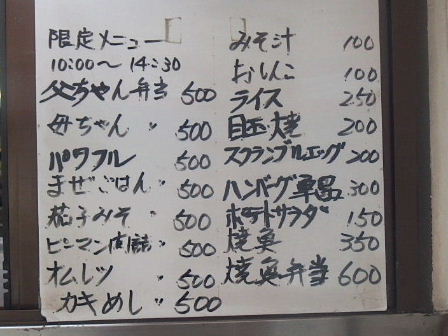 限定メニュー
10:00～14:30
父ちゃん弁当 500
母ちゃん 〃 500
パワフル 500
まぜごはん 〃 500
茄子みそ 〃 500
ピーマン肉詰 〃 500
オムレツ 〃 500
カキめし 〃 500
みそ汁 100
おしんこ 100
ライス 250
目玉焼 200
スクランブルエッグ 200
ハンバーグ単品 300
ポテトサラダ 150
焼魚 350
焼魚弁当 600